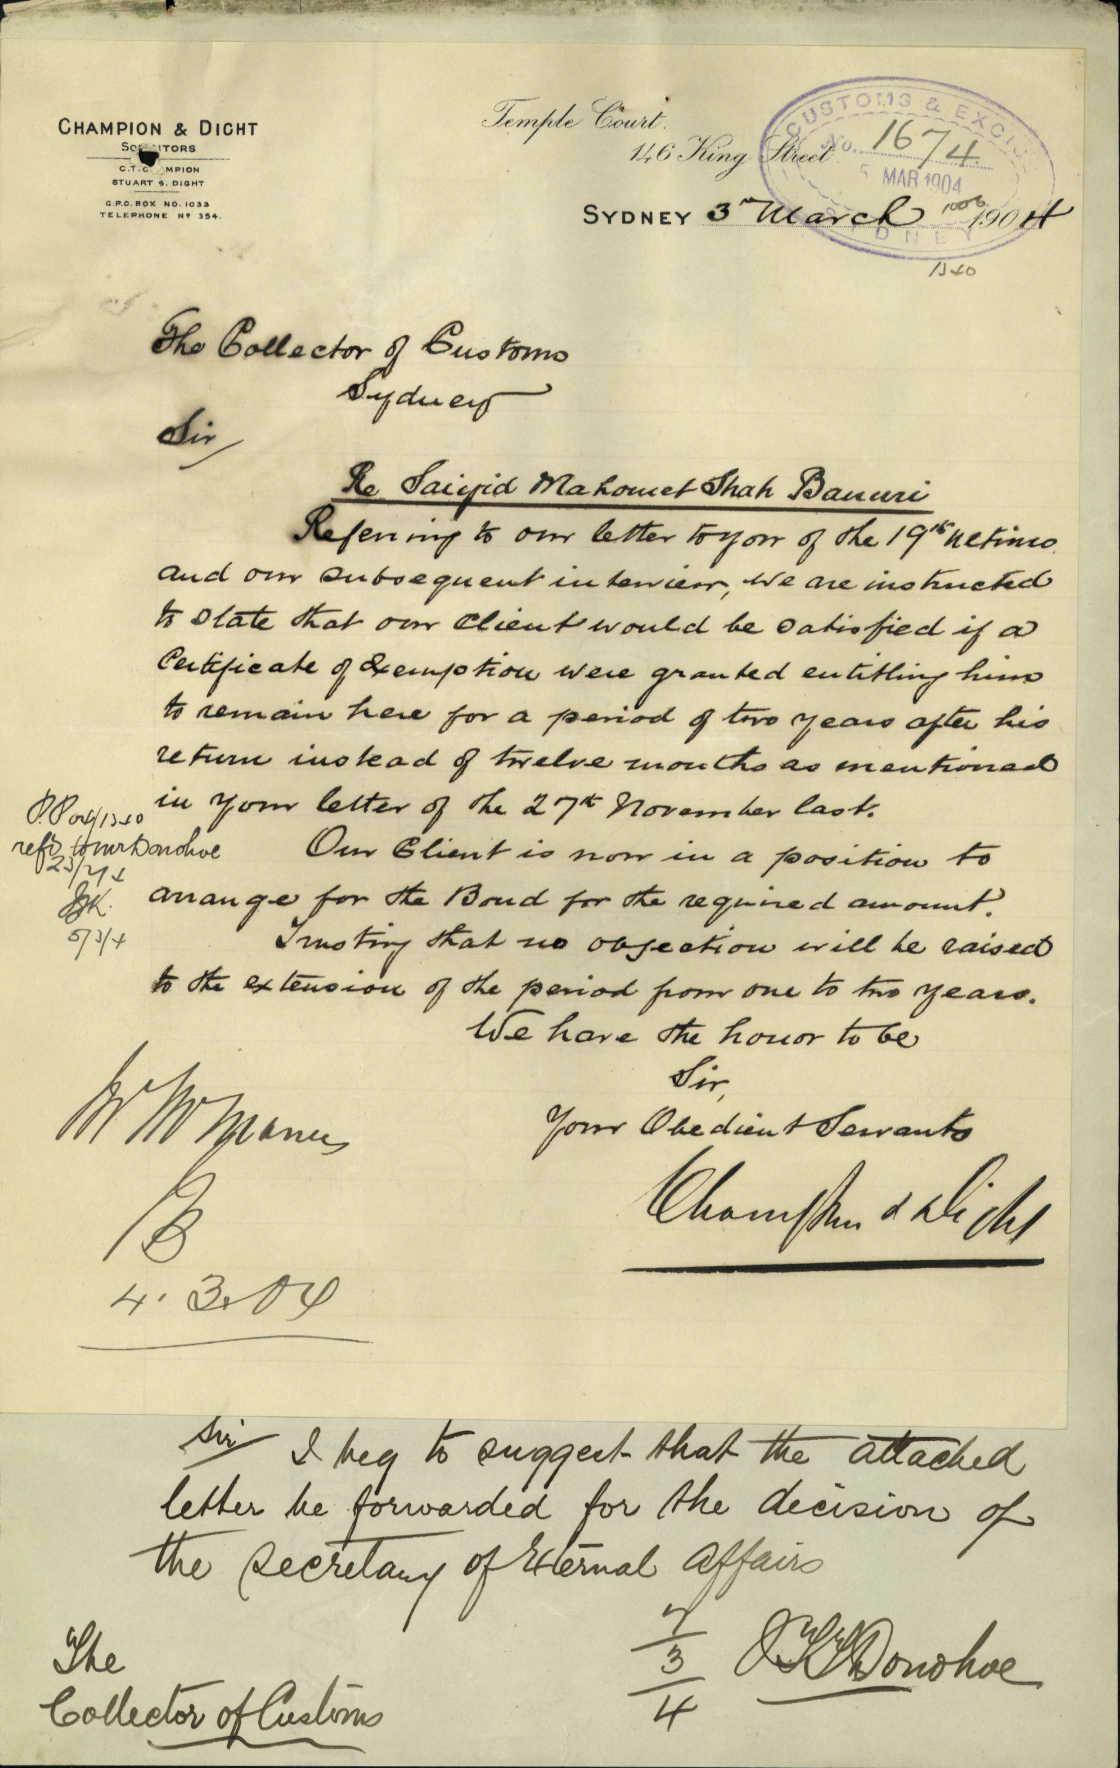 CHAMPION & DIGHT
SOLICITORS
C.T. CHAMPION
STUART S. DIGHT
G.P.O. BOX NO. 1033
TELEPHONE Nº 354.
Temple Court.
146 King Street
CUSTOMS & EXCISE
No. 1674
5 MAR 1904
SYDNEY
SYDNEY 3rd March 1904
The Collector of Customs
Sydney
Sir
Re Saiyid Mahomet Shah Banuri
Referring to our letter to you of the 19th ultimo
and our subsequent interview, we are instructed
to state that our client would be satisfied if a
Certificate of Exemption were granted entitling him
to remain here for a period of two years after his
return instead of twelve months as mentioned
in your letter of the 27th November last.
Our Client is now in a position to
arrange for the Bond for the required amount.
Trusting that no objection will be raised
to the extension of the period from one to two years.
We have the honor to be
Sir,
Your Obedient Servants
Champion & Dight
P.P.
refd to Mr Donohoe
5/3/4
Mr McManus
4.3.04
Sir I beg to suggest that the attached
letter be forwarded for the decision of
the Secretary of External Affairs
7/3/4
Donohoe
The
Collector of Customs